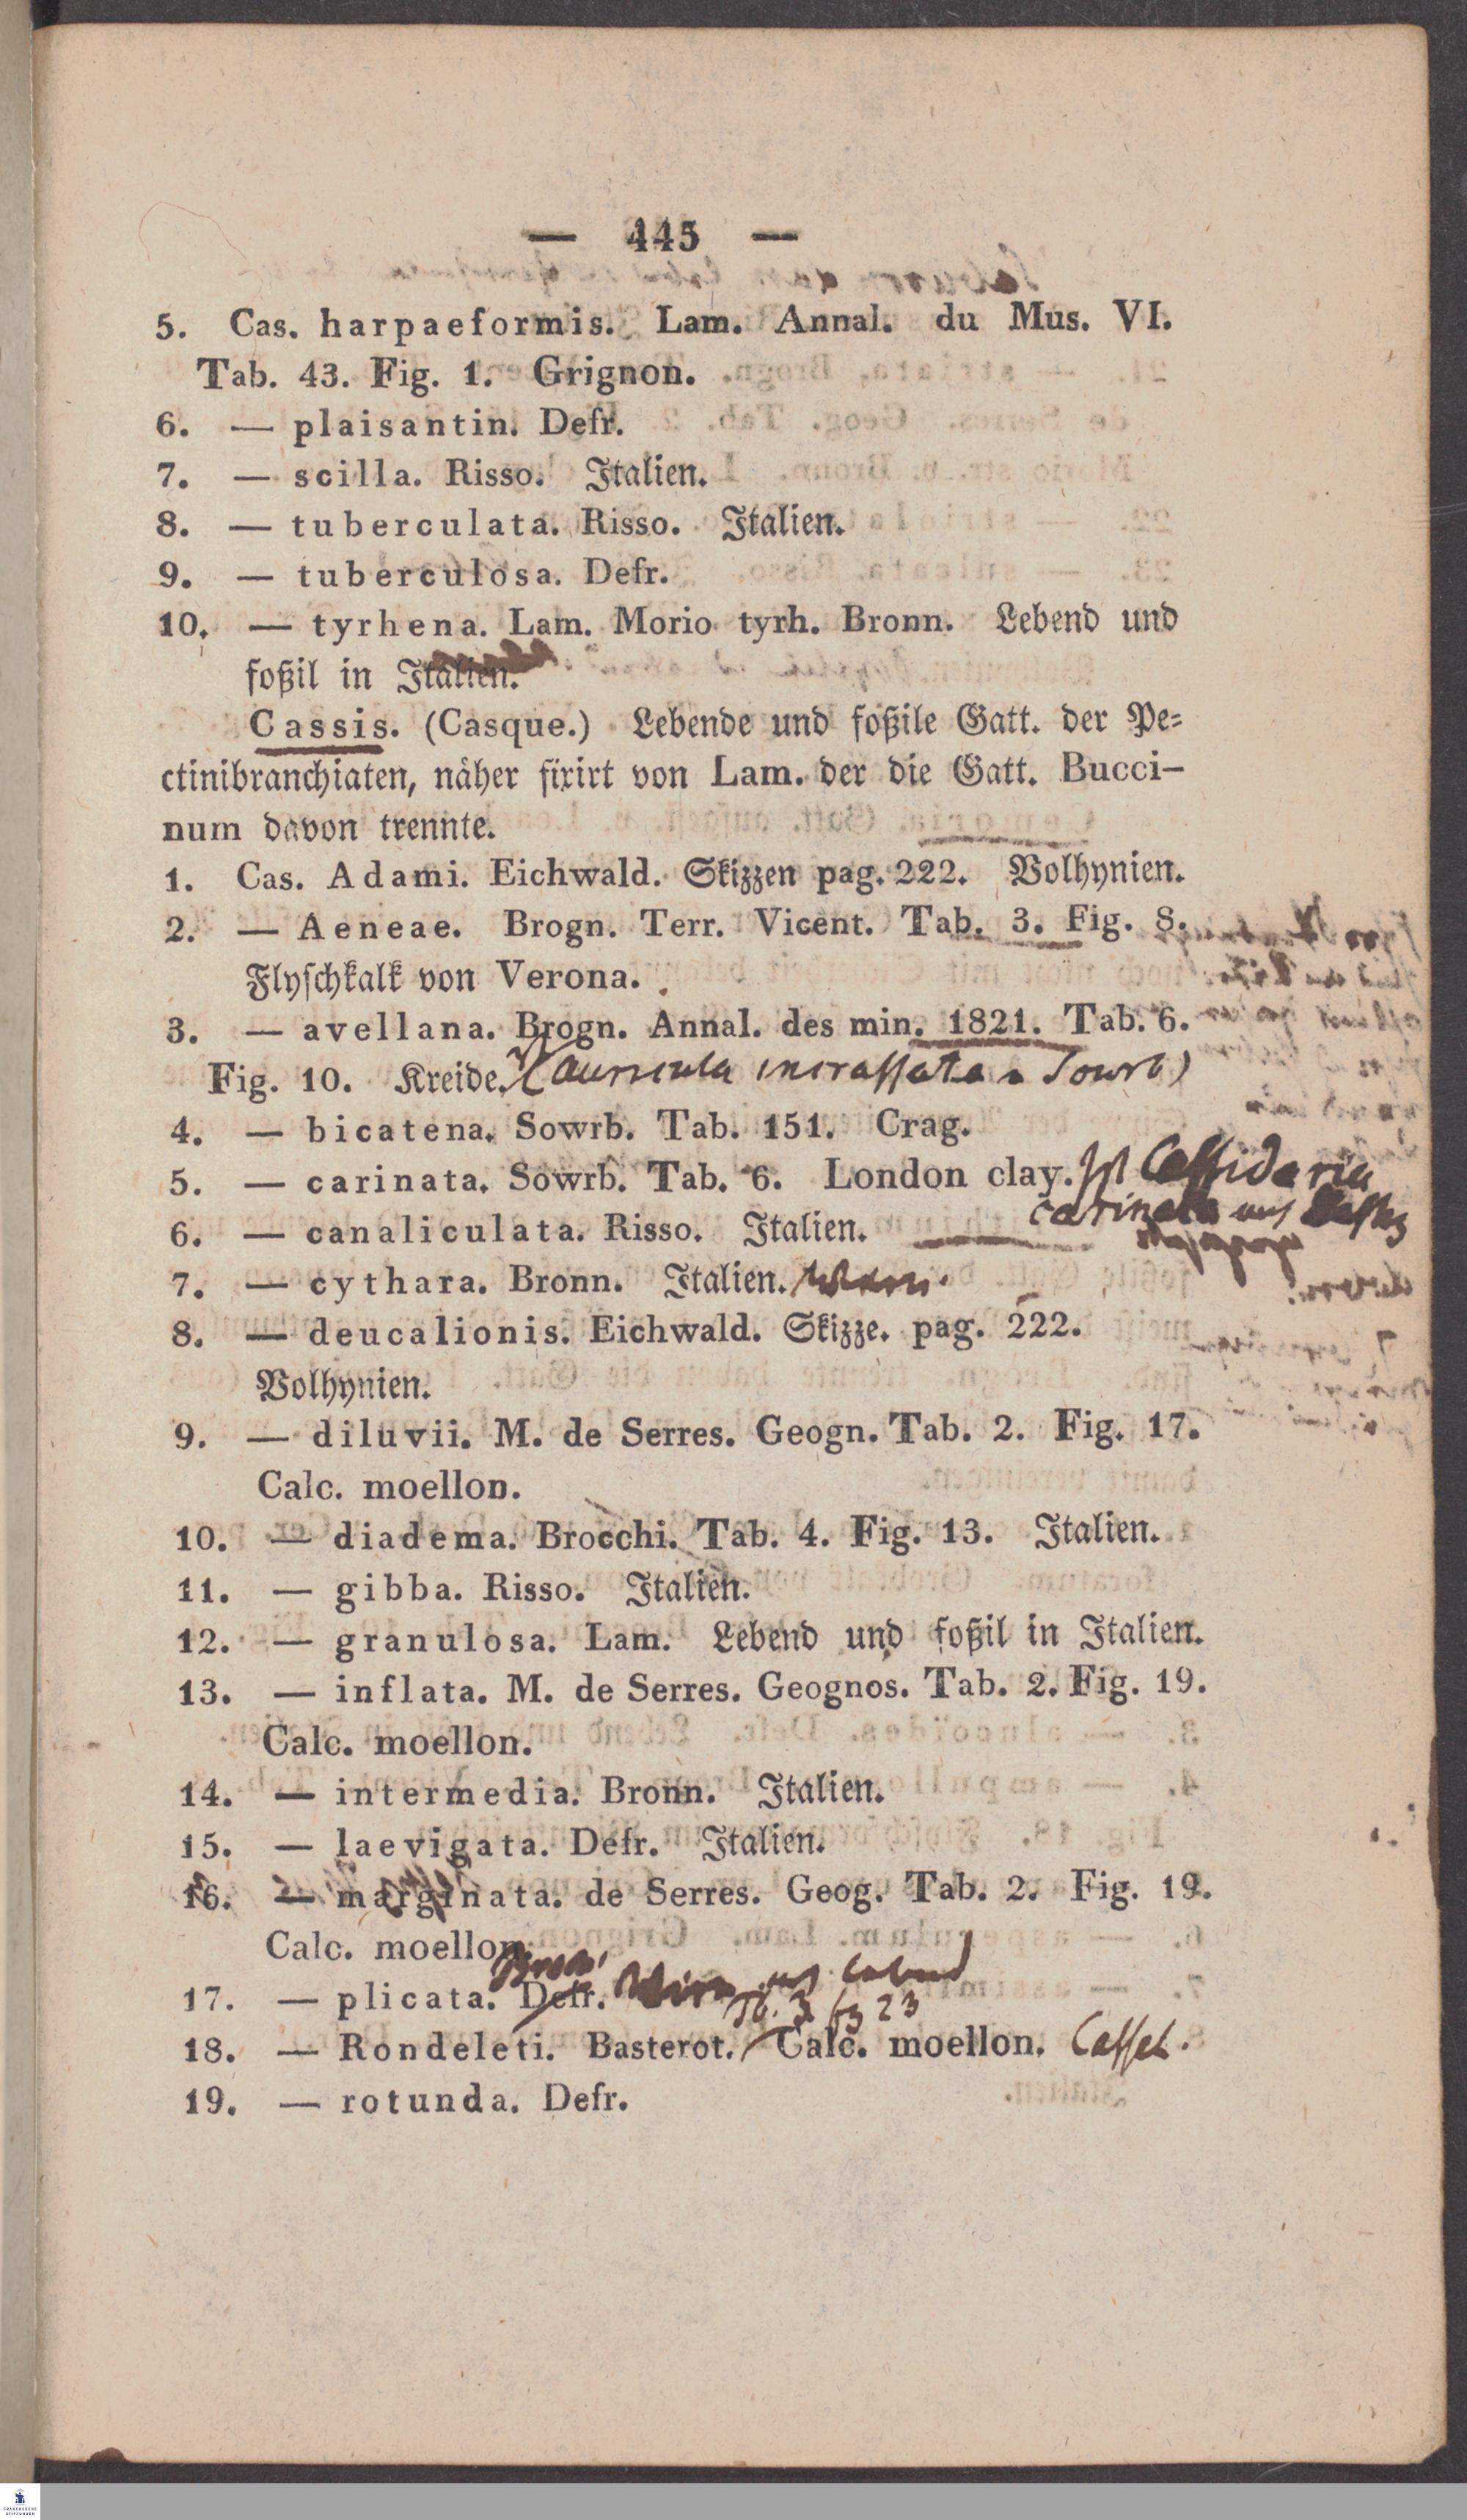 — 445 —
5. Cas. harpaeformis. Lam. Annal. du Mus. VI.
Tab. 43. Fig. 1. Grignon.
6. — plaisantin. Defr.
7. — scilla. Risso. Italien.
8. — tuberculata. Risso. Italien.
9. — tuberculosa. Defr.
10. — tyrhena. Lam. Morio tyrh. Bronn. Lebend und
foßil in Italien.
Cassis. (Casque.) Lebende und foßile Gatt. der Pe-
ctinibranchiaten, näher fixirt von Lam. der die Gatt. Bucci-
num davon trennte.
1. Cas. Adami. Eichwald. Skizzen pag. 222. Volhynien.
2. — Aeneae. Brogn. Terr. Vicent. Tab. 3. Fig. 8.
Flyschkalk von Verona.
3. — avellana. Brogn. Annal. des min. 1821. Tab. 6.
Fig. 10. Kreide. (Auricula incrassata Sowrb)
4. — bicatena. Sowrb. Tab. 151. Crag.
5. — carinata. Sowrb. Tab. 6. London clay. Ist Cassidaria
carinata
6. — canaliculata. Risso. Italien.
7. — cythara. Bronn. Italien.
8. — deucalionis. Eichwald. Skizze. pag. 222.
Volhynien.
9. — diluvii. M. de Serres. Geogn. Tab. 2. Fig. 17.
Calc. moellon.
10. — diadema. Brocchi. Tab. 4. Fig. 13. Italien.
11. — gibba. Risso. Italien.
12. — granulosa. Lam. Lebend und foßil in Italien.
13. — inflata. M. de Serres. Geognos. Tab. 2. Fig. 19.
Calc. moellon.
14. — intermedia. Bronn. Italien.
15. — laevigata. Defr. Italien.
16. — marginata. de Serres. Geog. Tab. 2. Fig. 19.
Calc. moellon.
17. — plicata. Defr.
Tb. 3 fg 23
18. — Rondeleti. Basterot. Calc. moellon. Cassel.
19. — rotunda. Defr.
FRANCKESCHE
STIFTUNGEN